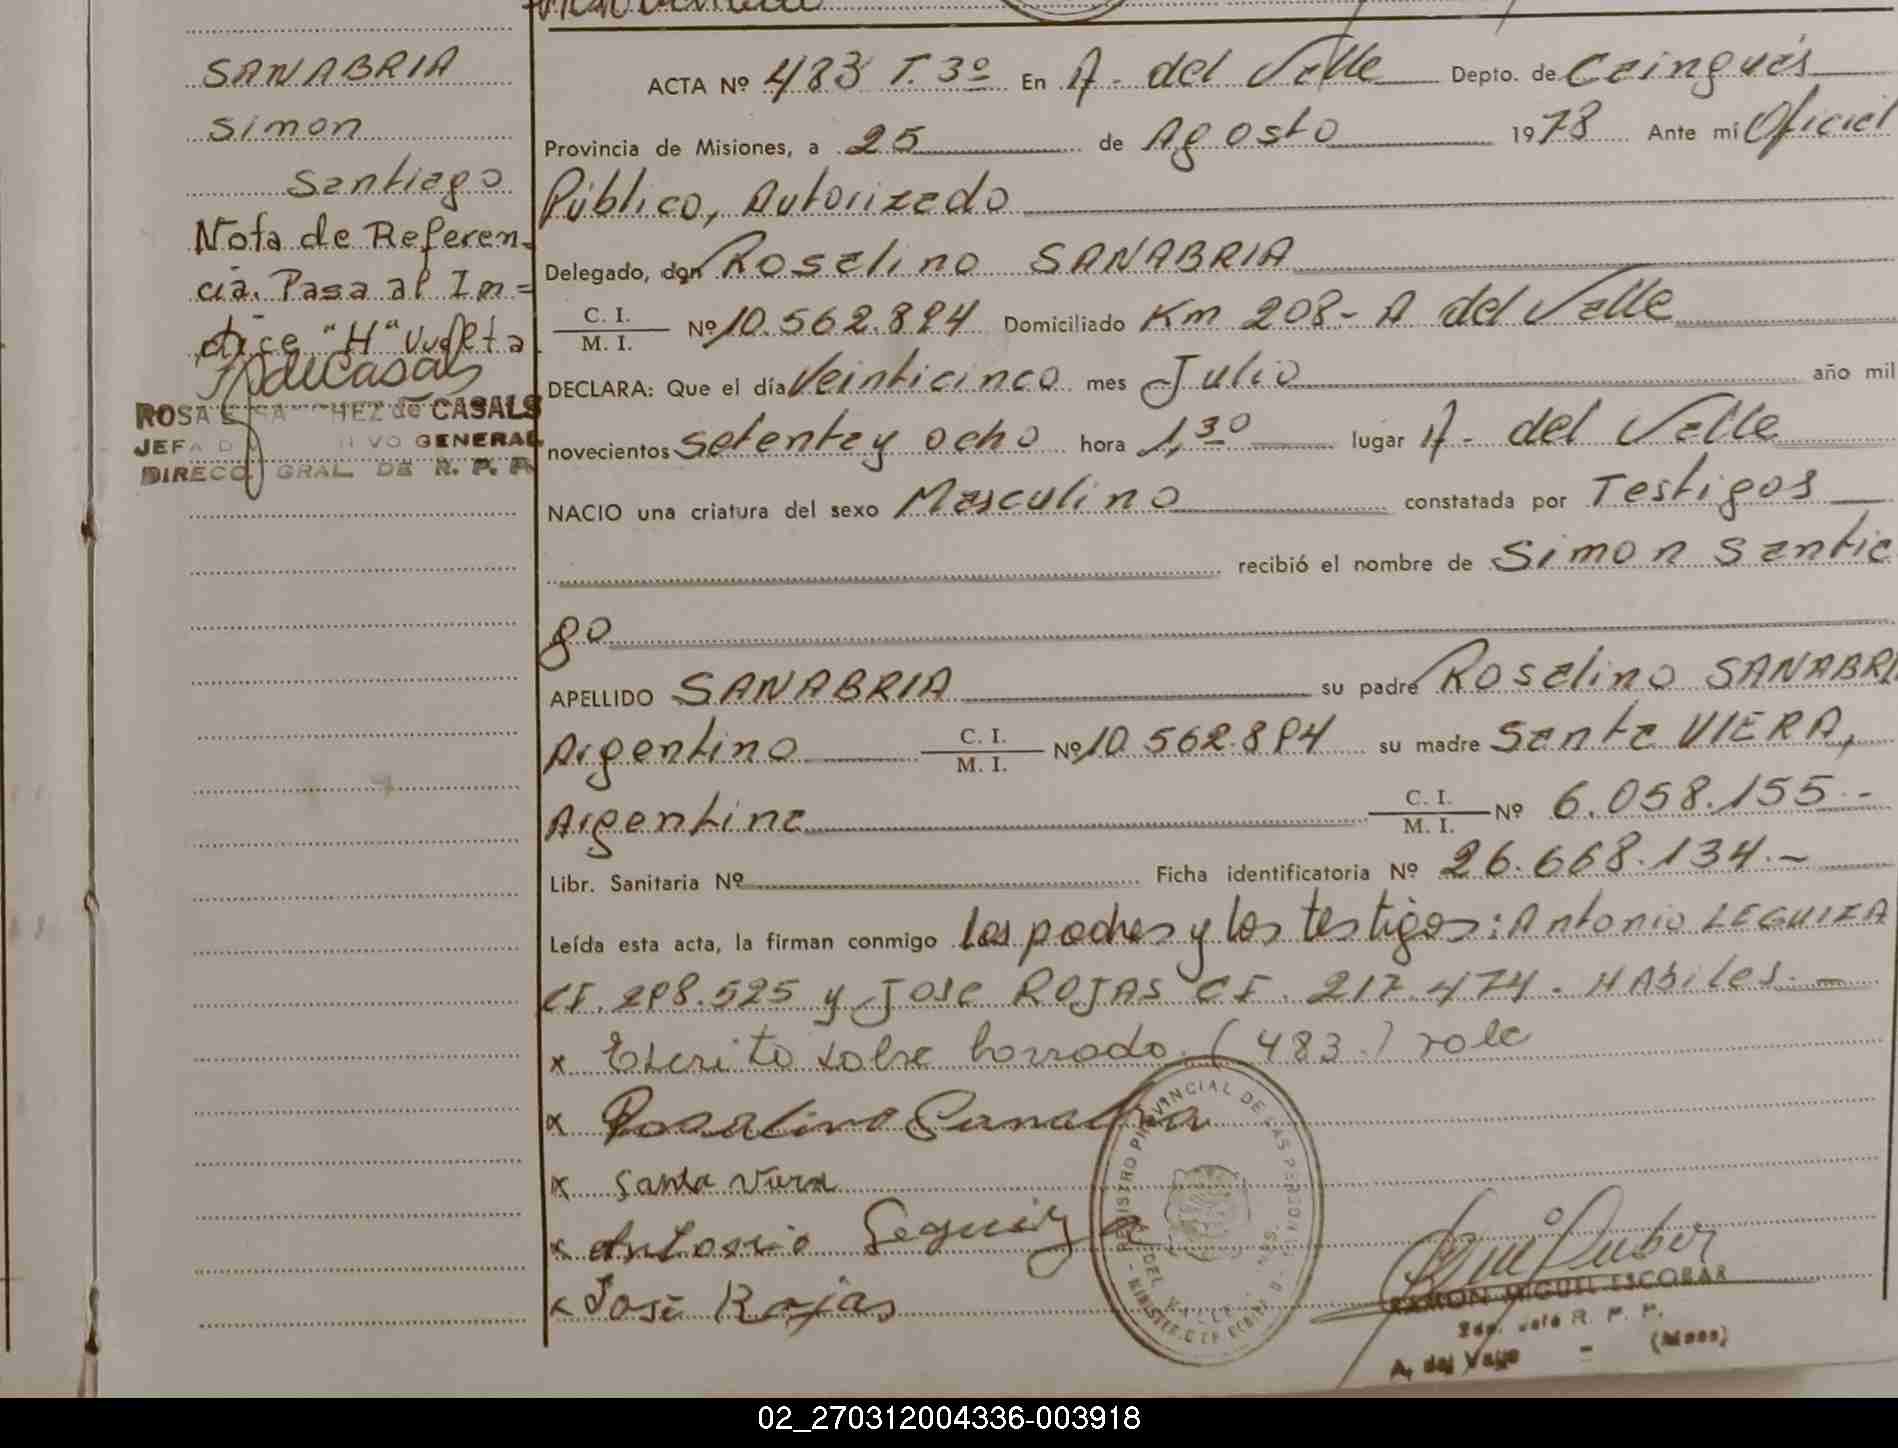 SANABRIA
Simon
Santiago
Nota de Referen-
cia. Pasa al In=
dice "H" Vuelta
ROSA CHEZ de CASALS
JEFA D IVO GENERAL
DIRECC. GRAL. DE R. P. P.
ACTA Nº 483 T. 3º En A. del Valle Depto. de Cainguás
Provincia de Misiones, a 25 de Agosto 1978 Ante mí Oficial
Público, Autorizado
Delegado, don Rosalino SANABRIA
C. I.
M. I. Nº 10.562.894 Domiciliado Km 208- A del Valle
DECLARA: Que el día Veinticinco mes Julio año mil
novecientos setenta y ocho hora 1,30 lugar A. del Valle
NACIO una criatura del sexo Masculino constatada por Testigos
recibió el nombre de Simon Santia
go
APELLIDO SANABRIA su padre Rosalino SANABRI
Argentino C. I. M. I. Nº 10.562.894 su madre Santa VIERA,
Argentina C. I. M. I. Nº 6.058.155.-
Libr. Sanitaria Nº Ficha identificatoria Nº 26.668.134.-
Leída esta acta, la firman conmigo los padres y los testigos: Antonio LEGUIZA
CI. 298.525 y Jose ROJAS CI. 217.474. HAbiles.-
x Escrito sobre borrado (483) vale
x Rosalino Sanabria
x Santa Viera
x Antonio Leguiza
x José Rojas
REGISTRO PROVINCIAL DE LAS PERSONAS
DEL VALLE
RAMON MIGUEL ESCOBAR
R. P. P.
A. del Valle - (Mnes)
02_270312004336-003918